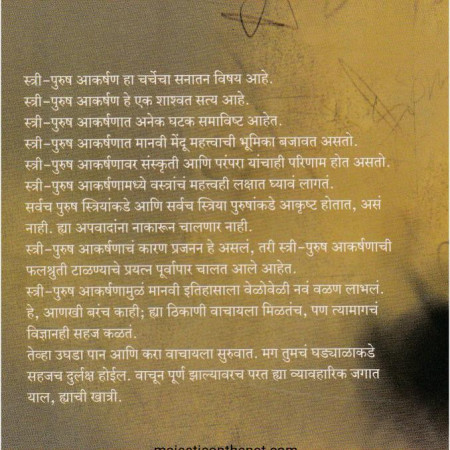 स्त्री-पुरुष आकर्षण हा चर्चेचा सनातन विषय आहे.
स्त्री-पुरुष आकर्षण हे एक शाश्वत सत्य आहे.
स्त्री-पुरुष आकर्षणात अनेक घटक समाविष्ट आहेत.
स्त्री-पुरुष आकर्षणात मानवी मेंदू महत्त्वाची भूमिका बजावत असतो.
स्त्री-पुरुष आकर्षणावर संस्कृती आणि परंपरा यांचाही परिणाम होत असतो.
स्त्री-पुरुष आकर्षणामध्ये वस्त्रांचं महत्त्वही लक्षात घ्यावं लागतं.
सर्वच पुरुष स्त्रियांकडे आणि सर्वच स्त्रिया पुरुषांकडे आकृष्ट होतात, असं
नाही. ह्या अपवादांना नाकारून चालणार नाही.
स्त्री-पुरुष आकर्षणाचं कारण प्रजनन हे असलं, तरी स्त्री-पुरुष आकर्षणाची
फलश्रुती टाळण्याचे प्रयत्न पूर्वापार चालत आले आहेत.
स्त्री-पुरुष आकर्षणामुळं मानवी इतिहासाला वेळोवेळी नवं वळण लाभलं.
हे, आणखी बरंच काही; ह्या ठिकाणी वाचायला मिळतंच, पण त्यामागचं
विज्ञानही सहज कळतं.
तेव्हा उघडा पान आणि करा वाचायला सुरुवात. मग तुमचं घड्याळाकडे
सहजच दुर्लक्ष होईल. वाचून पूर्ण झाल्यावरच परत ह्या व्यावहारिक जगात
याल, ह्याची खात्री.